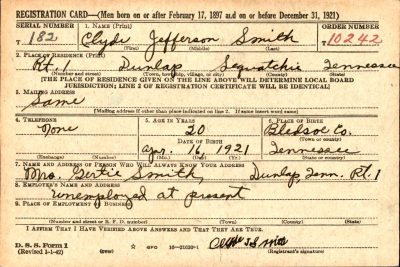 REGISTRATION CARD—(Men born on or after February 17, 1897 and on or before December 31, 1921)
SERIAL NUMBER 1. NAME (Print) ORDER NUMBER
T 182 Clyde Jefferson Smith 10242
(First) (Middle) (Last)
2. PLACE OF RESIDENCE (Print)
Rt. 1 Dunlap Sequatchie Tennessee
(Number and street) (Town, township, village, or city) (County) (State)
[THE PLACE OF RESIDENCE GIVEN ON THE LINE ABOVE WILL DETERMINE LOCAL BOARD
JURISDICTION; LINE 2 OF REGISTRATION CERTIFICATE WILL BE IDENTICAL]
3. MAILING ADDRESS
Same
[Mailing address if other than place indicated on line 2. If same insert word same]
4. TELEPHONE 5. AGE IN YEARS 6. PLACE OF BIRTH
None 20 Bledsoe Co.
DATE OF BIRTH (Town or county)
Apr. 16, 1921 Tennessee
(Exchange) (Number) (Mo.) (Day) (Yr.) (State or country)
7. NAME AND ADDRESS OF PERSON WHO WILL ALWAYS KNOW YOUR ADDRESS
Mrs. Gertie Smith, Dunlap, Tenn. Rt. 1
8. EMPLOYER'S NAME AND ADDRESS
Unemployed at present
9. PLACE OF EMPLOYMENT OR BUSINESS
(Number and street or R. F. D. number) (Town) (County) (State)
I AFFIRM THAT I HAVE VERIFIED ABOVE ANSWERS AND THAT THEY ARE TRUE.
D. S. S. Form 1
(Revised 1-1-42) GPO 16—21630-1 Clyde J. Smith
(Registrant's signature)